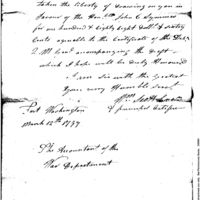 taken the liberty of drawing on you in
favour of the Hon. John C Symmes
for one hundred & eighty eight Doll.s & ninety
Cents agreeable to the Certificate of the Dep.y
Q. M. Genl accompanying the Dept
which I hope will be duly Honored
I am Sir with the greatest
your very Humble Servt
Fort Washington
March 12th 1797
The Accountant of the
War Department